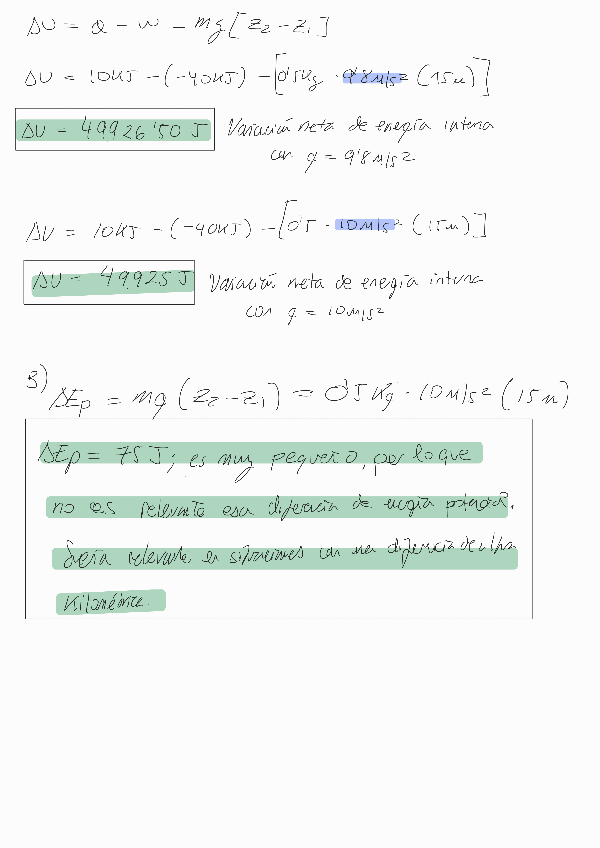 ΔU = Q - W - mg[z₂-z₁]
ΔU = 10KJ - (-40KJ) - [0'5Kg · 9'8m/s² (15m)]
ΔU = 49926'50 J Variación neta de energía interna
con g = 9'8m/s²
ΔU = 10KJ - (-40KJ) - [0'5 · 10m/s² (15m)]
ΔU = 49925 J Variación neta de energía interna
con g = 10m/s²
3)
ΔEp = mg (z₂-z₁) = 0'5Kg · 10m/s² (15m)
ΔEp = 75 J; es muy pequeño, por lo que
no es relevante esa diferencia de energía potencial.
Sería relevante en situaciones con una diferencia de altura
Kilométrica.